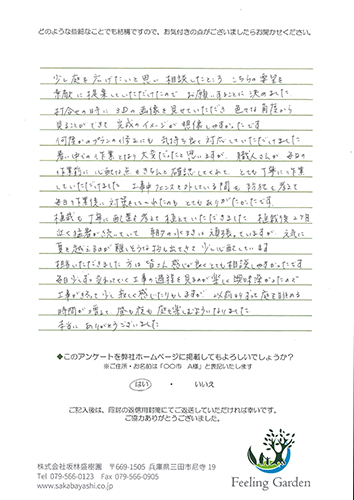 どのような些細なことでも結構ですので、お気付きの点がございましたらお聞かせください。
少し庭を広げたいと思い相談したところ こちらの希望を
素敵に提案していただけたので お願いすることに決めました
打合せの時に3Dの画像を見せていただき 色々な角度から
見ることができて 完成のイメージが想像しやすかったです
何度かのプランの修正にも 気持ち良く対応していただけました
暑い中での作業となり 大変だったと思いますが、職人さんが毎日の
作業前に 心配な点をきちんと確認してくれて とても丁寧に作業
していただけました 工事中フェンスを外している間も 防犯も考えて
毎日作業後に対策をしてくれたのも とてもありがたかったです
植栽も丁寧に配置を考えて植えていただきました 植栽後2ヶ月
近く猛暑が続いていて 朝夕の水やりは頑張っていますが 元気に
夏を越えるのが難しそうな物も出てきて 少し心配しています
担当いただきました方は皆さん感じが良くとても相談しやすかったです
毎日少しずつ変わっていく工事の過程を見るのが楽しく興味深かったので
工事が終って少し寂しく感じたりもしますが 以前よりずっと庭を眺める
時間が増えて 昼も夜も庭を楽しむようになりました
本当に ありがとうございました
◆このアンケートを弊社ホームページに掲載してもよろしいでしょうか?
※ご住所・お名前は「〇〇市 A様」と表記いたします
はい ・ いいえ
ご記入後は、同封の返信用封筒にてご返送していただければ幸いです。
ご協力ありがとうございました。
株式会社坂林盛樹園 〒669-1505 兵庫県三田市尼寺 19
Tel 079-566-0123 Fax 079-566-0905
www.sakabayashi.co.jp
Feeling Garden